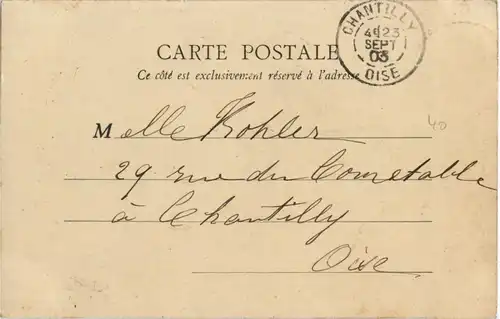 CHANTILLY
4E 23
SEPT
03
OISE
CARTE POSTALE
Ce côté est exclusivement réservé à l'adresse
Melle Kohler
29 rue du Connetable
à Chantilly
Oise
40